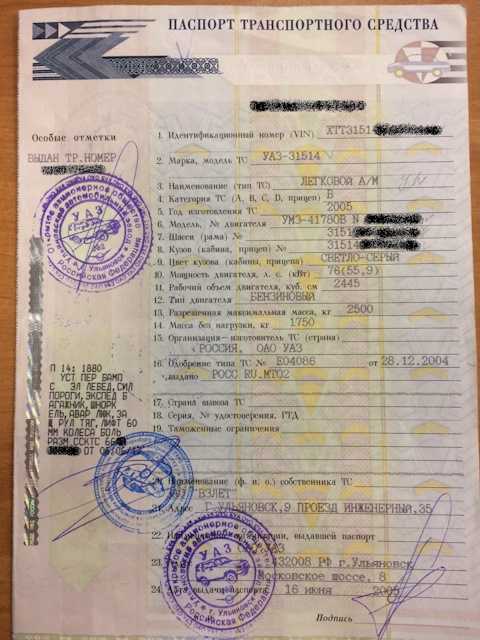 ПАСПОРТ ТРАНСПОРТНОГО СРЕДСТВА
Особые отметки
ВЫДАН ТР.НОМЕР
1. Идентификационный номер (VIN) XTT3151
2. Марка, модель ТС УАЗ-31514
3. Наименование (тип ТС) ЛЕГКОВОЙ А/М
4. Категория ТС (A, B, C, D, прицеп) B
5. Год изготовления ТС 2005
6. Модель, № двигателя УМЗ-41780В N
7. Шасси (рама) № 3151
8. Кузов (кабина, прицеп) № 31514
9. Цвет кузова (кабины, прицепа) СВЕТЛО-СЕРЫЙ
10. Мощность двигателя, л. с. (кВт) 76(55,9)
11. Рабочий объем двигателя, куб. см 2445
12. Тип двигателя БЕНЗИНОВЫЙ
13. Разрешенная максимальная масса, кг 2500
14. Масса без нагрузки, кг 1750
15. Организация—изготовитель ТС (страна)
РОССИЯ, ОАО УАЗ
16. Одобрение типа ТС № E04086 от 28.12.2004
выдано РОСС RU.МТ02
17. Страна вывоза ТС
18. Серия, № удостоверения, ГТД
19. Таможенные ограничения
П 14: 1880
УСТ ПЕР БАМП
С ЭЛ ЛЕБЕД,СИЛ
ПОРОГИ,ЭКСПЕД Б
АГАЖНИК,ШНОРК
ЕЛЬ,АВАР ЛЮК,ЗА
Щ РУЛ ТЯГ,ЛИФТ 60
ММ КОЛЕСА БОЛЬ
РАЗМ.ССКТС
ОТ
УАЗ
Российская Федерация
20. Наименование (ф. и. о.) собственника ТС
ВЗЛЕТ
21. Адрес Г.УЛЬЯНОВСК,9 ПРОЕЗД ИНЖЕНЕРНЫЙ,35
22. организации, выдавшей паспорт
23. 432008 РФ г.Ульяновск
Московское шоссе, 8
24. Дата выдачи паспорта 16 июня 2005
Подпись
УАЗ
Российская Федерация